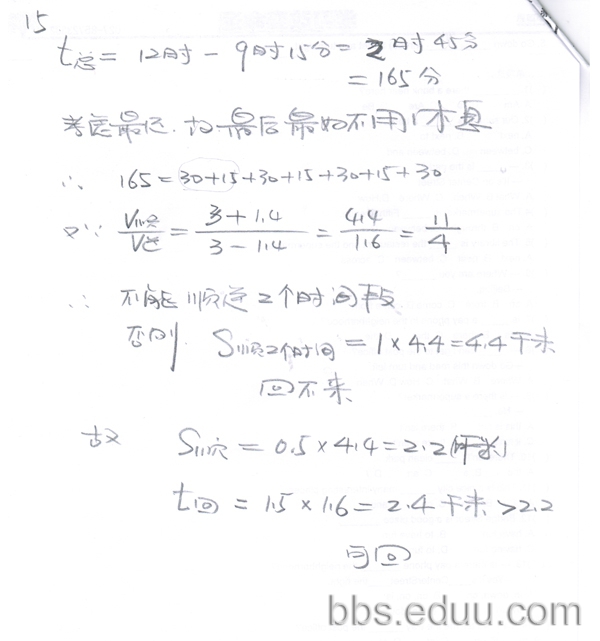 15
t总 = 12时 - 9时15分 = 2时45分
= 165分
考虑最远. 故最后最如不用休息
∴ 165 = 30+15+30+15+30+15+30
又∵ V顺/V逆 = 3+1.4/3-1.4 = 4.4/1.6 = 11/4
∴ 不能顺逆2个时间段
否则 S顺2个时间 = 1×4.4=4.4千米
回不来
故 S顺 = 0.5×4.4=2.2(千米)
t回 = 1.5×1.6=2.4千米>2.2
可回
bbs.eduu.com